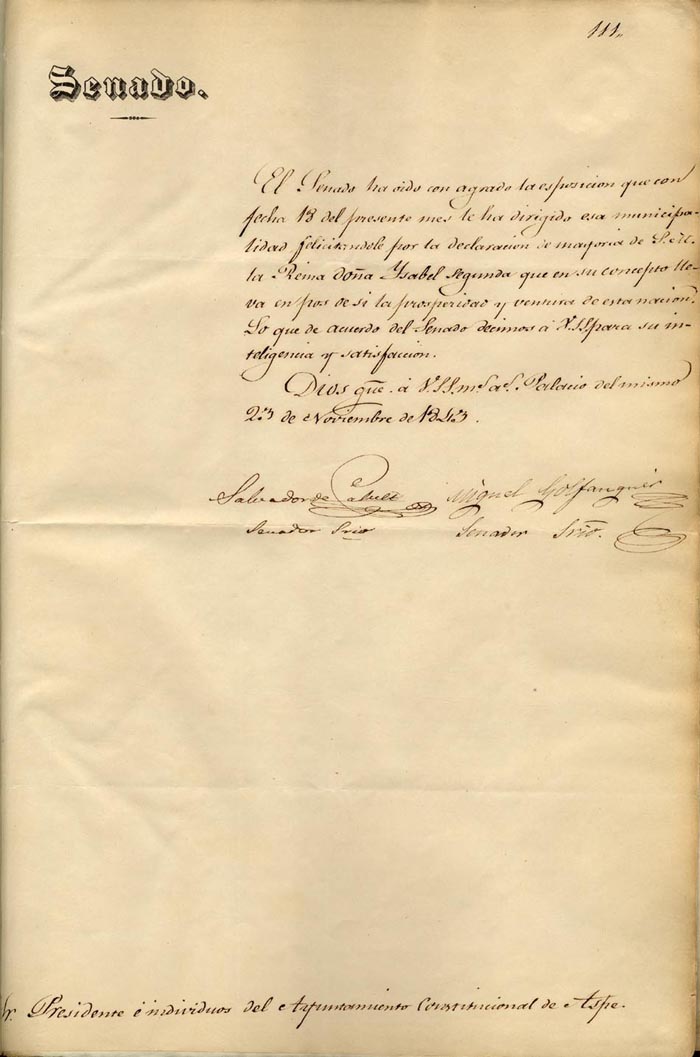 111,,
Senado.
El Senado ha oido con agrado la esposicion que con
fecha 13 del presente mes le ha dirigido esa municipa-
lidad felicitandole por la declaracion de mayoria de S. M.
la Reina doña Ysabel Segunda que en su concepto lle-
va en pos de si la prosperidad y ventura de esta nacion.
Lo que de acuerdo del Senado decimos á V.SS para su in-
teligencia y satisfaccion.
Dios gue. á V.SS. ms. as. Palacio del mismo
23 de Noviembre de 1843.
Salvador de Calvet Miguel Golfanguer
Senador Srio Senador Srio.
Sr. Presidente é individuos del Ayuntamiento Constitucional de Aspe.